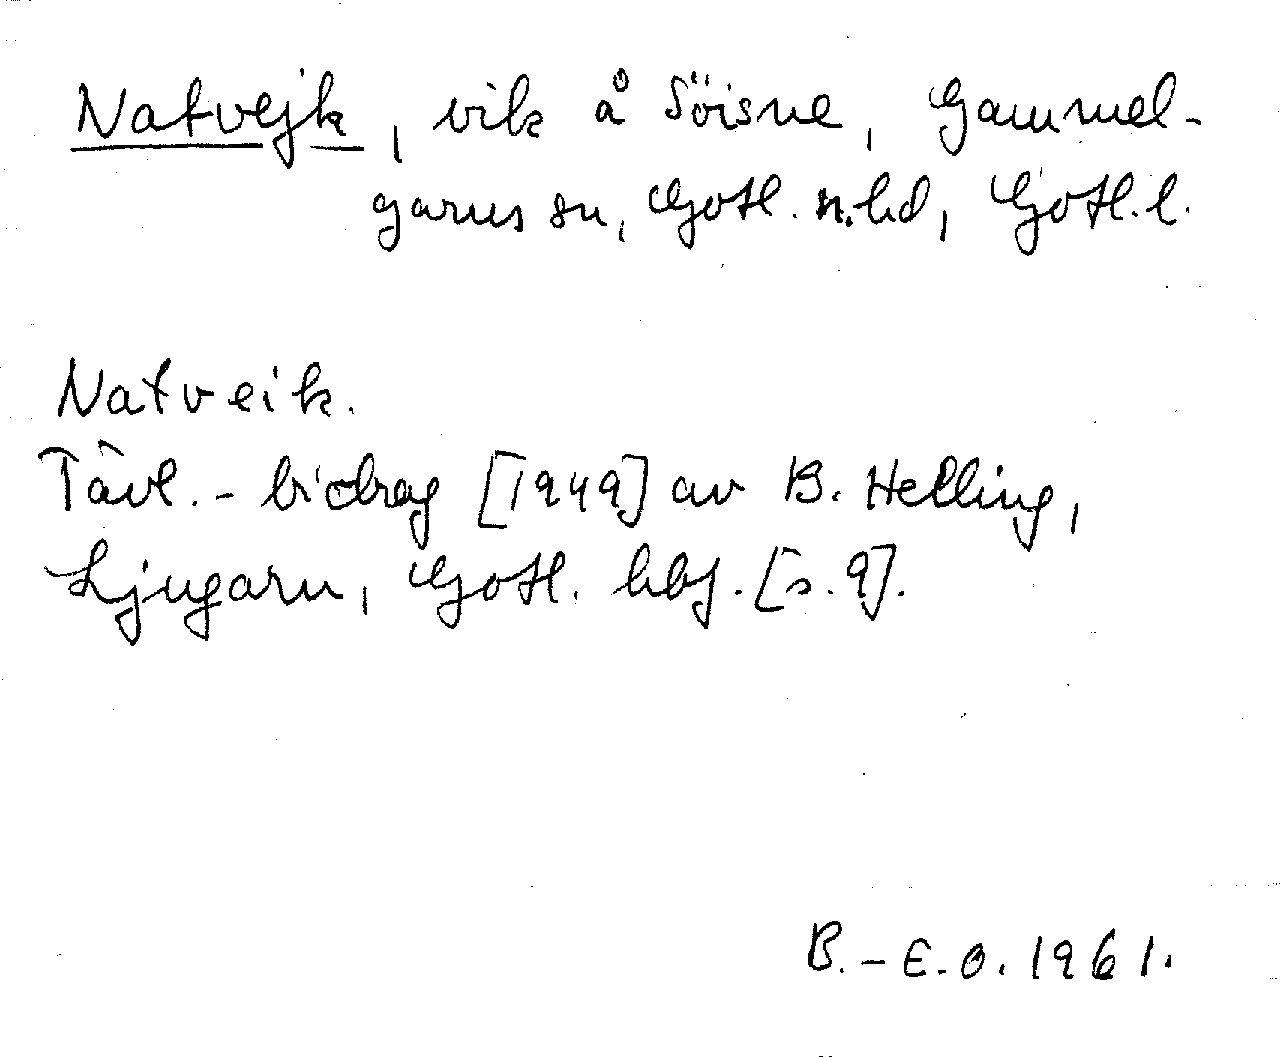 Natvejk, vik å Söisne, Gammel-
garns sn, Gotl. n. hd, Gotl. l.
Natveik.
Tävl.- bidrag [1949] av B. Helling,
Ljugarn, Gotl. hbf. [s. 9].
B.-E.O. 1961.